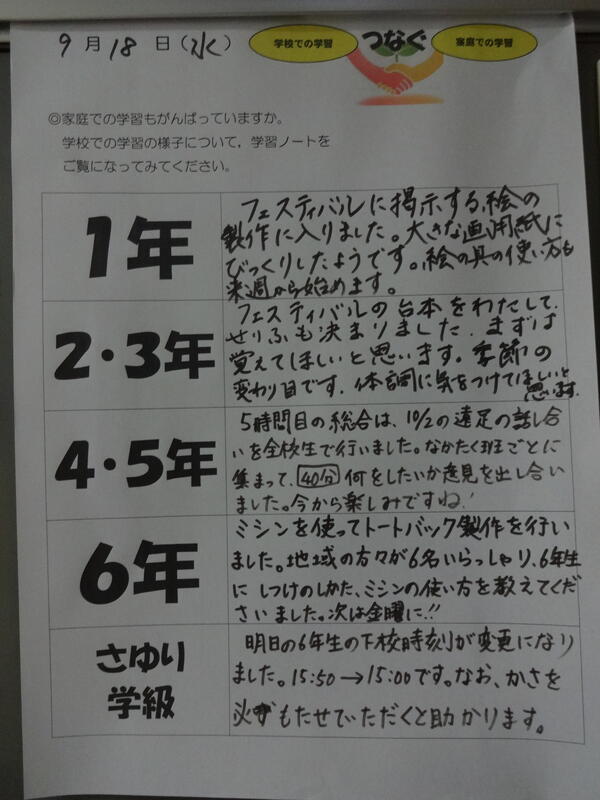 9月18日(水)
学校での学習 つなぐ 家庭での学習
◎家庭での学習もがんばっていますか。
学校での学習の様子について,学習ノートを
ご覧になってみてください。
1年
フェスティバルに掲示する絵の
製作に入りました。大きな画用紙に
びっくりしたようです。絵の具の使い方も
来週から始めます。
2・3年
フェスティバルの台本をわたして、
せりふも決まりました。まずは
覚えてほしいと思います。季節の
変わり目です。体調に気をつけてほしいと
思います。
4・5年
5時間目の総合は、10/2の遠足の話し合
いを全校生で行いました。なかたく班ごとに
集まって、40分何をしたいか意見を出し合い
ました。今から楽しみですね!
6年
ミシンを使ってトートバック製作を行い
ました。地域の方々が6名いらっしゃり、6年生
に しつけのしかた、ミシンの使い方を教えてくだ
さいました。次は金曜に!!
さゆり
学級
明日の6年生の下校時刻が変更になり
ました。15:50→15:00です。なお、かさを
必ずもたせていただくと助かります。